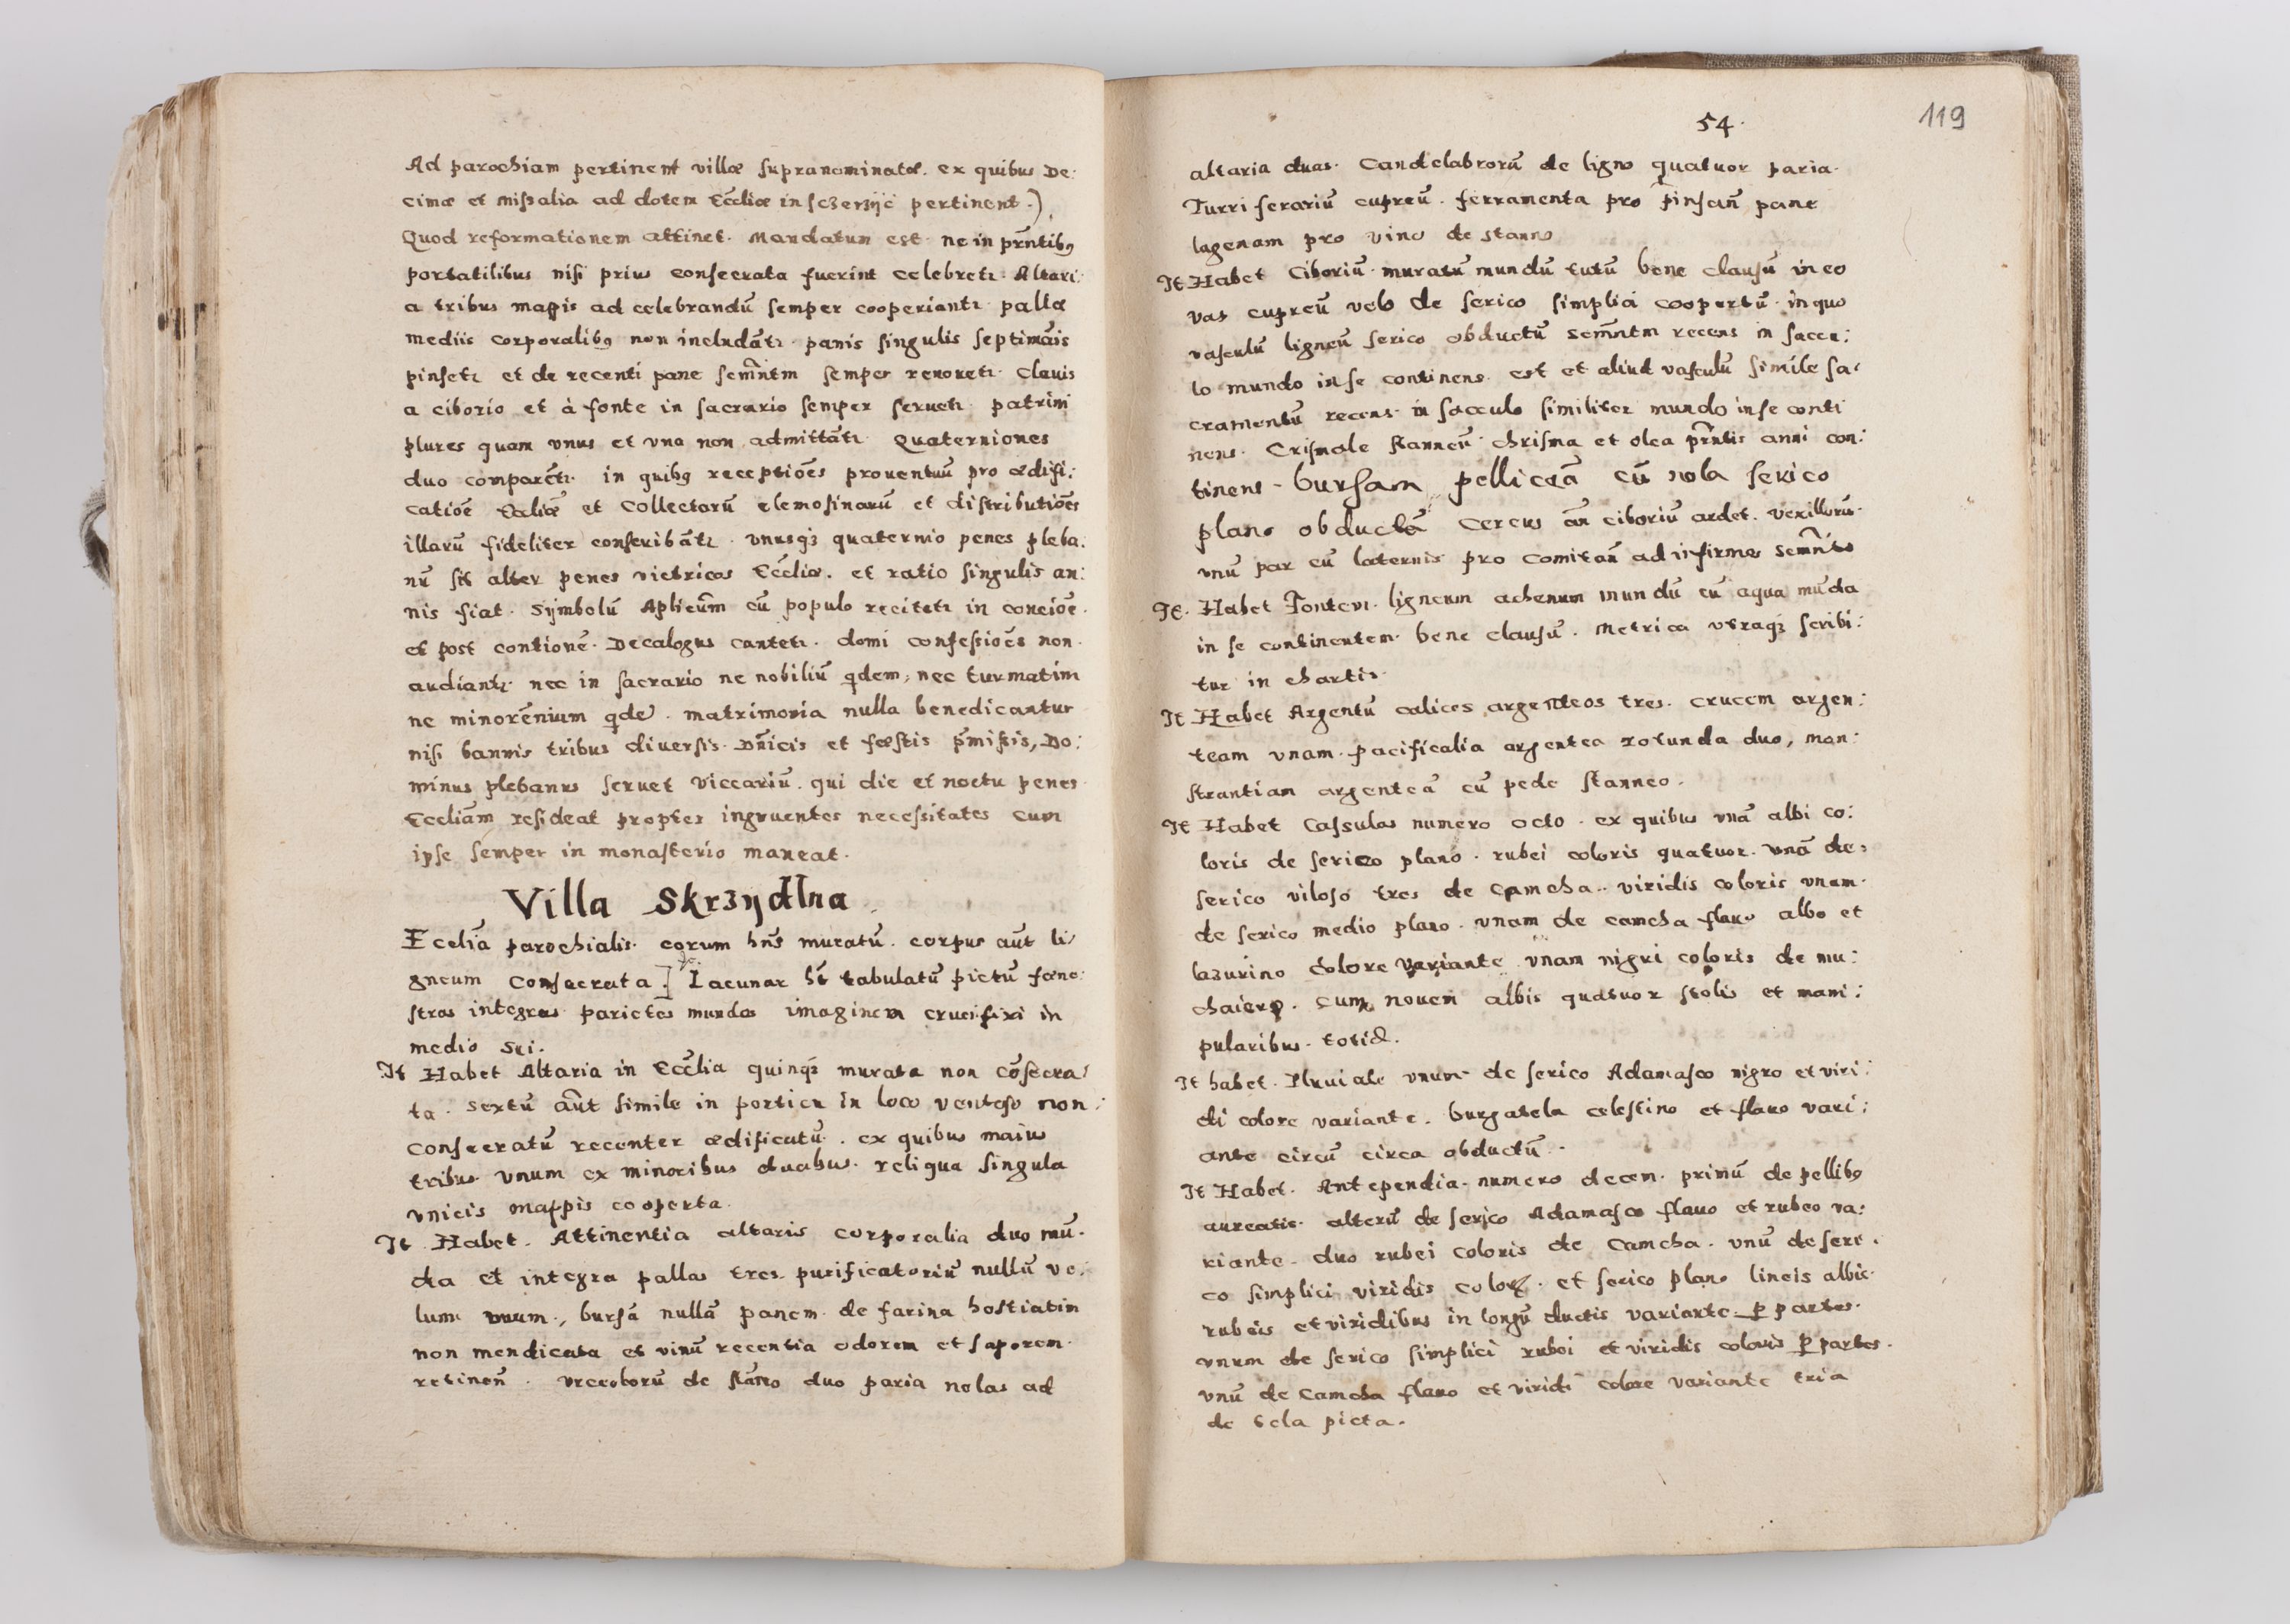 Ad parochiam pertinent villæ supranominatæ. ex quibus De:
cimæ et missalia ad dotem Ecc̄liæ in sczerzÿc pertinent.)
Quod reformationem attinet. Mandatum est ne in pr̄ntibꝯ
portatilibus nisi prius consecrata fuerint celebretꝛ. Altari:
a tribus mappis ad celebrandū semper cooperiantꝛ pallæ
mediis corporalibꝯ non includātꝛ. panis singulis septimāis
pinsetꝛ et de recenti pane sem̄ntm semper renouetꝛ. Clauis
a ciborio et à fonte in sacrario semper seruetꝛ. patrini
plures quam vnus et vna non admittātꝛ. Quaterniones
duo comparētꝛ. in quibꝯ receptiōes prouentuū pro ædifi:
catiōe Ecc̄liæ et Collectarū elemosinarū et distributiōes
illarū fideliter conscribātꝛ. vnusqꝫ quaternio penes pleba.
nū sit alter penes vietricos Ecc̄liæ. et ratio singulis an:
nis fiat. Sÿmbolū Aplicūm cū populo recitetꝛ in concioē.
et post contionē. Decalogus cantetꝛ. domi confessioēs non.
audiantꝛ nec in sacrario ne nobiliū qdem, nec turmatim
ne minorēnium qde. matrimonia nulla benedicantur
nisi bannis tribus diuersis Dn̄icis et fæstis p̄missis, Do:
minus plebanus seruet viccariū. qui die et noctu penes
Eccliām resideat propter ingruentes necessitates cum
ipse semper in monasterio maneat.
Villa Skrzydlna
Ecclīa parochialis. corum hn̄s muratū. corpus aūt li/
gneum consecrata] Lacunar ht̄ tabulatū pictū fæne:
stras integras parietes mundos imaginem crucifixi in
medio sui.
It Habet Altaria in Ecc̄lia quinqꝫ murata non cōsecra:
ta. Sextū aūt simile in porticu in loco ventoso non:
consecratū recenter ædificatū. ex quibus maius
tribus vnum ex minoribus duabus. reliqua singula
vnicis mappis cooperta.
It Habet. Attinentia altaris corporalia duo mū.
da et integra pallas tres purificatoriū nullū ve:
lum vnum., bursā nullā panem de farina hostiatim
non mendicata et vinū recentia odorem et saporem.
retinen̄. vrceolorū de stāno duo paria nolas ad
54.
119
altaria duas. Candelabrorū de ligno quatuor paria.
Turriferariū cupreū. ferramenta pro pinsan̄ pane
lagenam pro vino de stanno
It Habet Ciboriū muratū mundū tutū bene clausū in eo
vas cupreū velo de serico simplici coopertū. in quo
vasculū ligneū serico obductū sem̄ntm recens in saccu:
lo mundo in se continens. est et aliud vasculū simile sa/
cramentū recens in sacculo similiter mundo in se conti
nens. Crismale stanneū chrisma et olea pr̄ntis anni con:
tinens. bursam pelliceā cū nola serico
plano obductā Cereus an̄ ciboriū ardet. Vexillorū.
vnū par cū laternis pro comitan̄ ad infirmos sem̄nto
It. Habet Fontem. ligneum ahenum mundū cū aqua mūda
in se continentem. bene clausū. Metrica vtraqꝫ scribi:
tur in chartis.
It Habet Argentū calices argenteos tres. crucem argen:
team vnam. pacificalia argentea rotunda duo, mon:
strantiam argenteā cū pede stanneo.
It Habet Cassulas numero octo. ex quibus vnā albi co:
loris de serico plano. rubei coloris quatuor. vnā de:
serico viloso tres de camcha. viridis coloris vnam.
de serico medio plano. vnam de camcha flauo albo et
lazurino colore variante vnam nigri coloris de mu:
chaiero. cum nouem albis quatuor stolis et mani:
pularibus. totid.
It habet. Pluuiale vnum de serico Adamasco nigro et viri:
di colore variante. burgatela celestino et flauo vari:
ante circū circa obductū.
It Habet. Antependia. numero decem. primū de pellibꝯ
aureatis. alterū de serico Adamasco flauo et rubeo va:
riante. duo rubei coloris de Camcha. vnū de seri.
co simplici viridis color. et serico plano lineis albis.
rubeis et viridibus in longū ductis variante ꝑ partes.
vnum de serico simplici rubei et viridis coloris ꝑ partes.
vnū de camcha flauo et viridi colore variante tria
de tela picta.